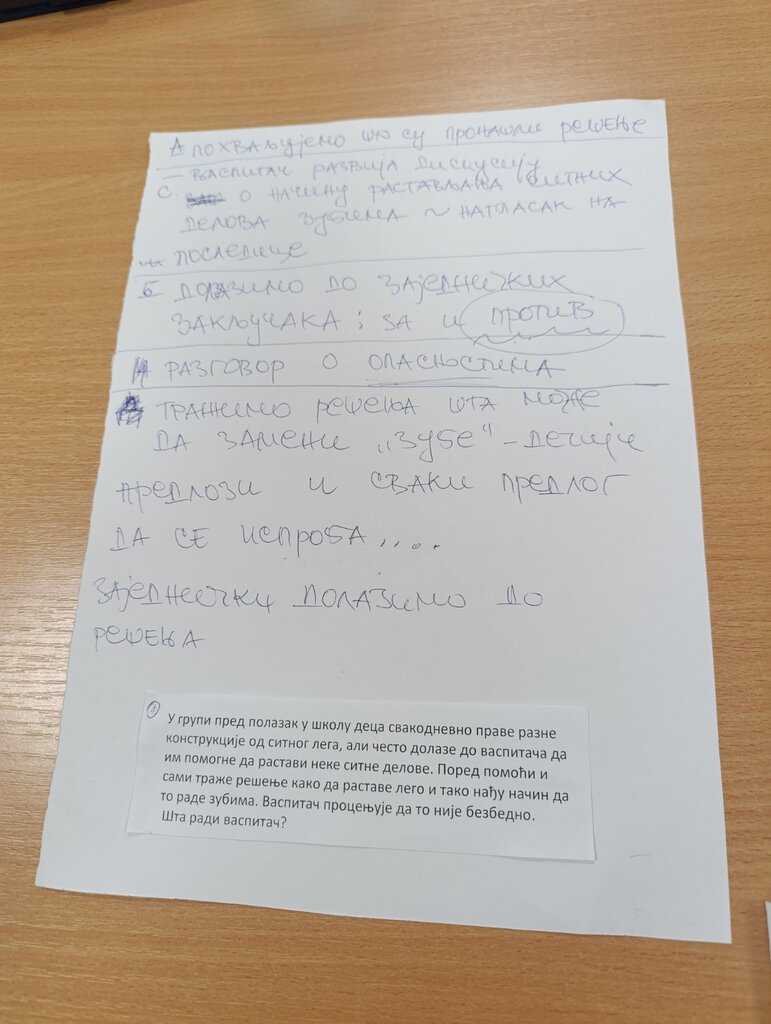 А ПОХВАЉУЈЕМО ШТО СУ ПРОНАШЛИ РЕШЕЊЕ
— ВАСПИТАЧ РАЗВИЈА ДИСКУСИЈУ
С. О НАЧИНУ РАСТАВЉАЊА СИТНИХ
ДЕЛОВА ЗУБИМА ~ НАГЛАСАК НА
ПОСЛЕДИЦЕ
Б ДОЛАЗИМО ДО ЗАЈЕДНИЧКИХ
ЗАКЉУЧАКА : ЗА И ПРОТИВ
РАЗГОВОР О ОПАСНОСТИМА
ТРАЖИМО РЕШЕЊА ШТА МОЖЕ
ДА ЗАМЕНИ „ЗУБЕ“ - ДЕЧИЈЕ
ПРЕДЛОЗИ И СВАКИ ПРЕДЛОГ
ДА СЕ ИСПРОБА ....
ЗАЈЕДНИЧКИ ДОЛАЗИМО ДО
РЕШЕЊА
1 У групи пред полазак у школу деца свакодневно праве разне
конструкције од ситног лега, али често долазе до васпитача да
им помогне да растави неке ситне делове. Поред помоћи и
сами траже решење како да раставе лего и тако нађу начин да
то раде зубима. Васпитач процењује да то није безбедно.
Шта ради васпитач?